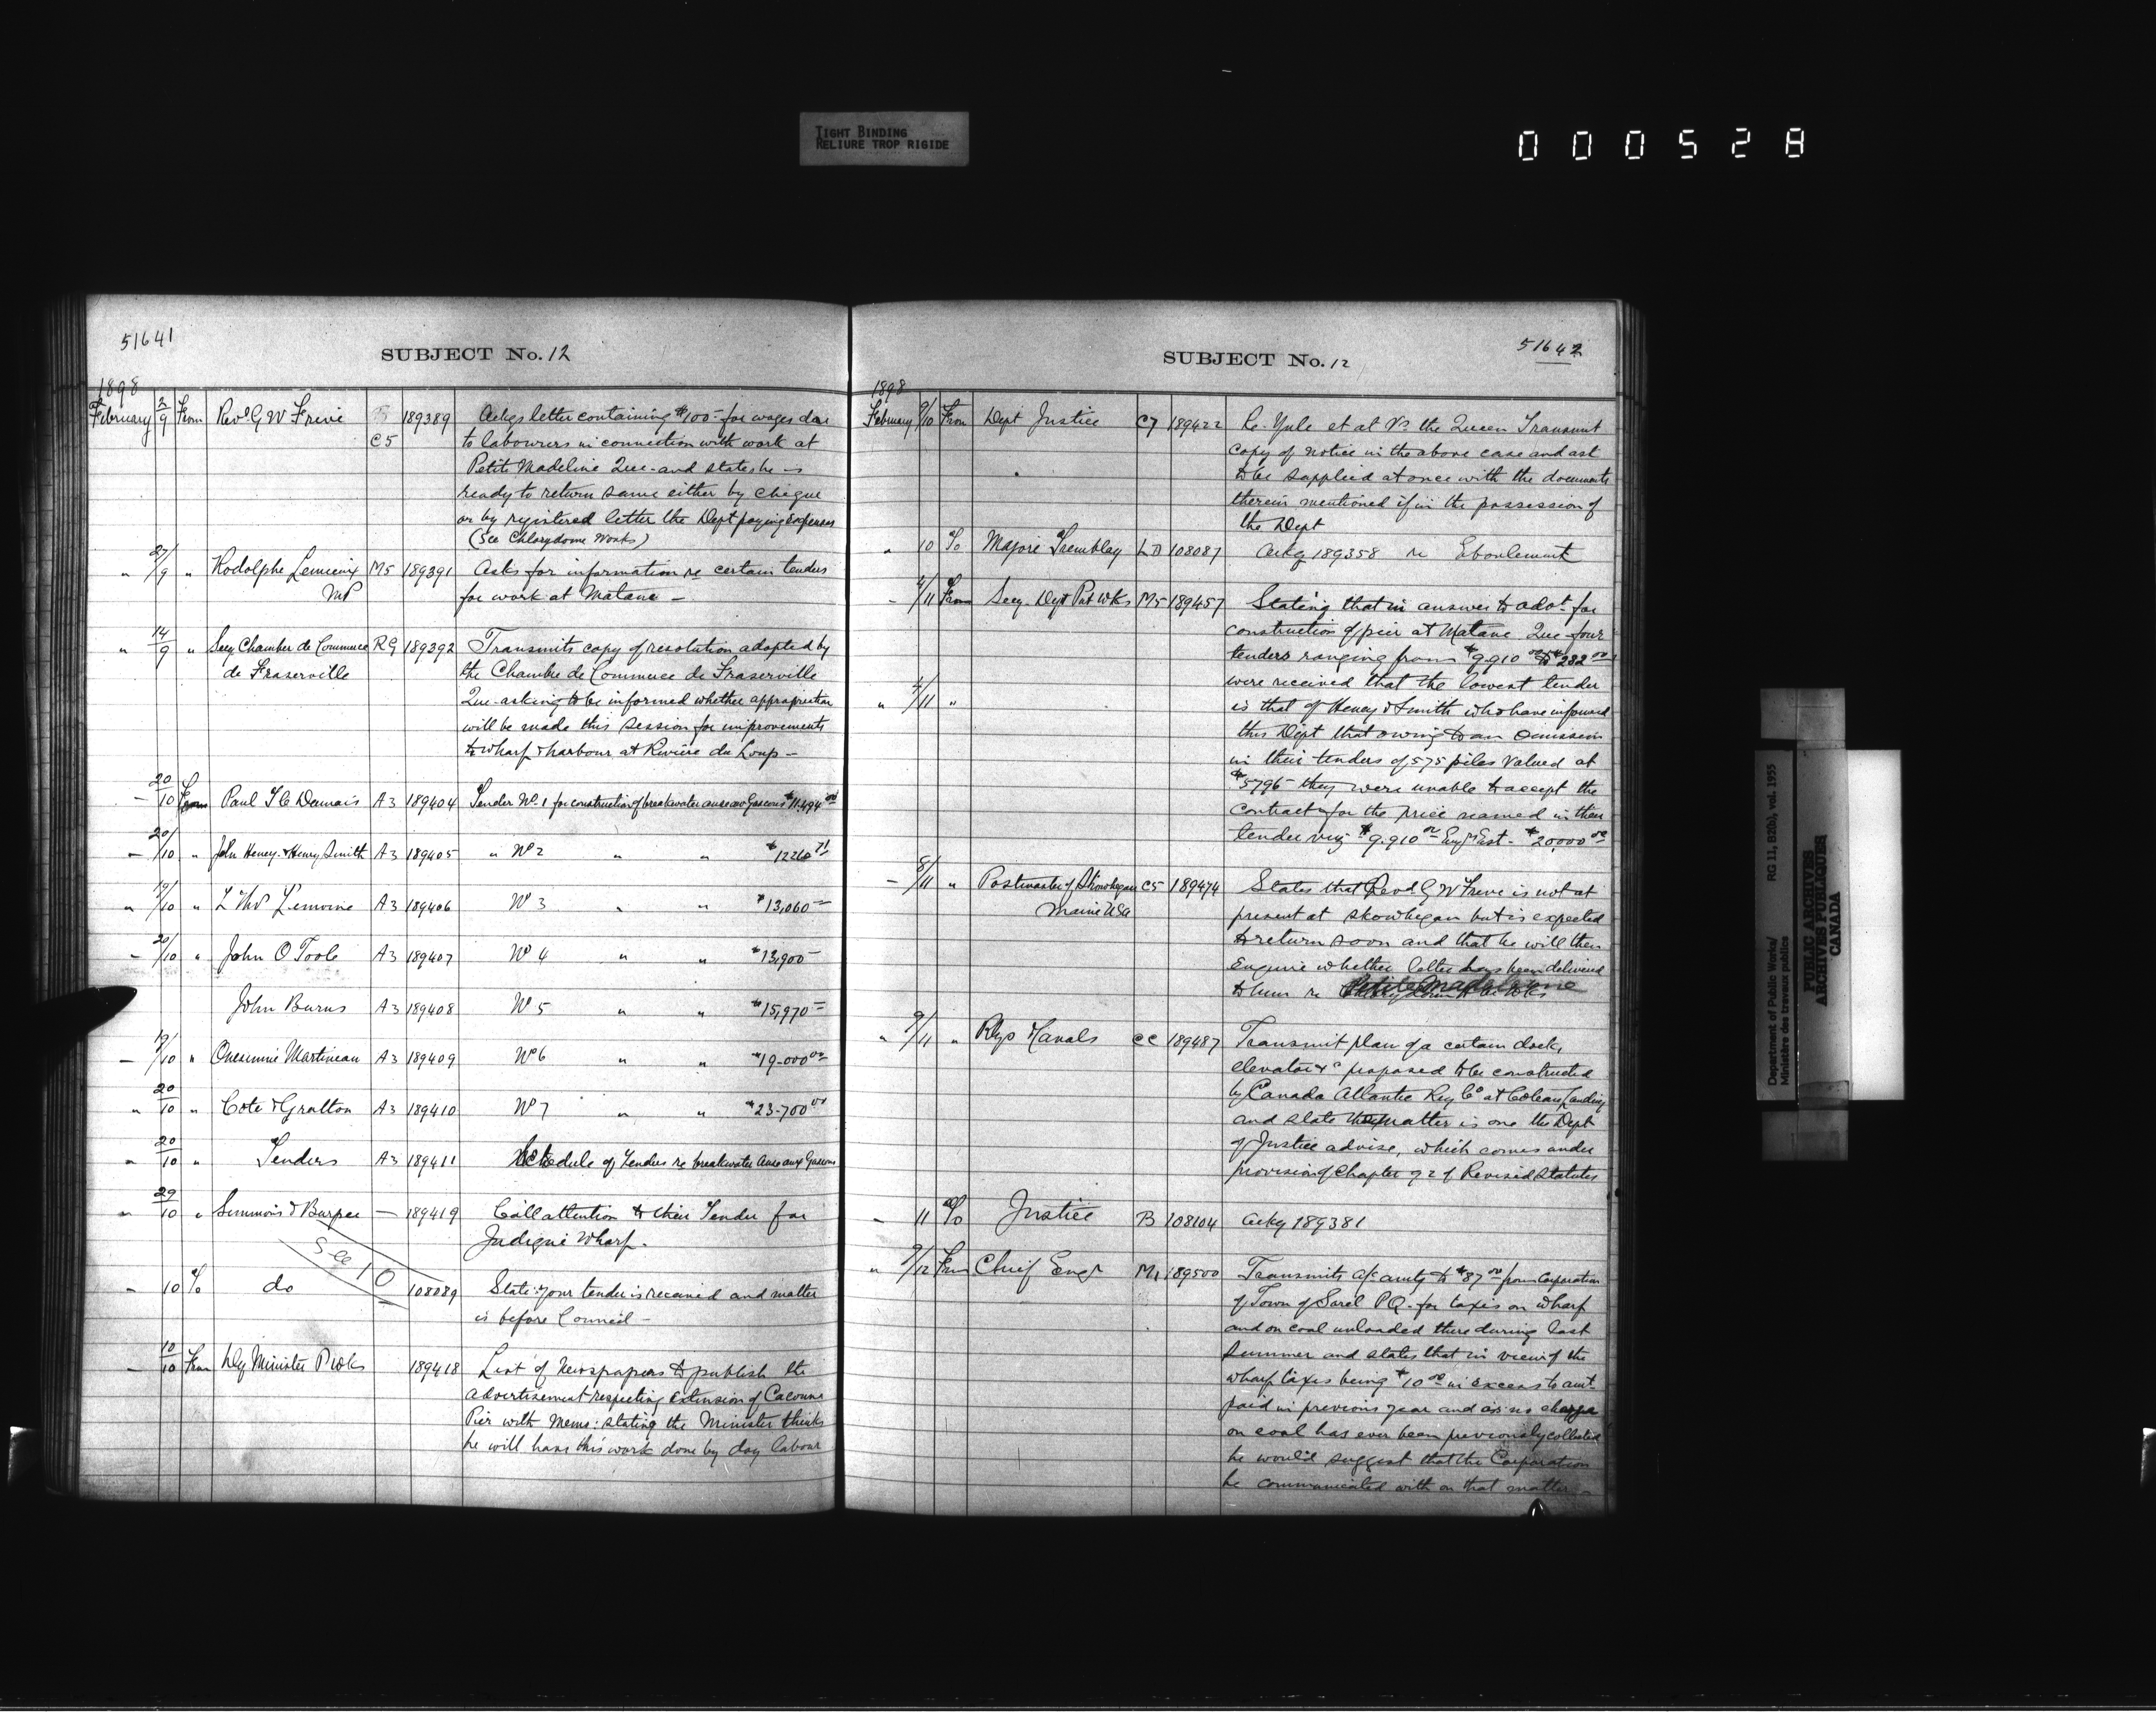 TIGHT BINDING
RELIURE TROP RIGIDE
000528
51641
SUBJECT No. 12
1898
February 2/9 From Revd G W Freve C5 189389 Ackgs letter containing $100- for wages due
to labourers in connection with work at
Petite Madeline Que- and states he is
ready to return same either by cheque
or by registered letter the Dept paying expenses
(See Chlorydome Works)
" 27/9 " Rodolphe Lemieux M5 189391 Asks for information re certain tenders
MP for work at Matane -
" 14/9 " Secy Chamber de Commerce R9 189392 Transmits copy of resolution adopted by
de Fraserville the Chambre de Commerce de Fraserville
Que- asking to be informed whether appropriation
will be made this session for improvements
to wharf & harbour at Rivière du Loup -
- 20/10 From Paul T C Dumais A3 189404 Tender No. 1 for construction of breakwater anse aux Gascons $11,494 00
- 20/10 " John Heney & Henry Smith A3 189405 " No 2 " " $12260 71
" 19/10 " Lemoine A3 189406 No 3 " " $13,060 -
- 20/10 " John O Toole A3 189407 No 4 " " $13,900 -
John Burns A3 189408 No 5 " " $15,970 -
- 19/10 " Onesimie Martineau A3 189409 No 6 " " $19-000 00
" 20/10 " Cote & Gratton A3 189410 No 7 " " $23-700 00
" 20/10 " Tenders A3 189411 Schedule of Tenders re breakwater Anse aux Gascons
" 29/10 " Simmons & Burpee - 189419 Call attention to their Tender for
Judique Wharf.
See 10
- 10 To do 108089 State: your tender is received and matter
is before Council -
- 10/10 From Dy Minister P Wks 189418 List of Newspapers to publish the
advertisement respecting extension of Cacouna
Pier with memo: stating the Minister thinks
he will have this work done by day labour
51642
SUBJECT No. 12
1898
February 9/10 From Dept Justice C7 189422 Re- Yule et al Vs the Queen Transmit
copy of notice in the above case and ask
to be supplied at once with the documents
therein mentioned if in the possession of
the Dept
" 10 To Majore Tremblay LD 108087 Ackg 189358 re Eboulement
- 4/11 From Secy- Dept Pub Wks M5 189457 Stating that in answer to advt. for
construction of pier at Matane Que- four
tenders ranging from $9.910 00 to
" 4/11 " were received that the lowest tender
is that of Heney & Smith who have informed
this Dept that owing to an Omission
in their tenders of 575 piles valued at
$5796- they were unable to accept the
contract for the price named in their
tender viz- $9.910 00 Eng's Est- $20,000 00
- 8/11 " Postmaster of Skowhegan C5 189474 States that Revd. G W Freve is not at
Maine USA present at Skowhegan but is expected
to return soon and that he will then
Enquire whether letter has been delivered
to him re Petite Madelaine
" 9/11 " Rlys & Canals CC 189487 Transmit plan of a certain dock,
elevator &c proposed to be constructed
by Canada Atlantic Rwy Co at Coteau Landing
and state the matter is one the Dept
of Justice advise, which comes under
provision of Chapter 92 of Revised Statutes
- 11 To Justice B 108104 Ackg 189381
" 9/12 From Chief Engr M1 189500 Transmits a/c amtg to $87 00 from Corporation
of Town of Sorel P.Q.- for taxes on wharf
and on coal unloaded there during last
Summer and states that in view of the
wharf taxes being $10 00 in excess to amt-
paid in previous year and as no charge
on coal has ever been previously collected
he would suggest that the Corporation
be communicated with on that matter -
Department of Public Works/
Ministère des travaux publics
RG 11, B2(b), vol. 1955
PUBLIC ARCHIVES
ARCHIVES PUBLIQUES
CANADA